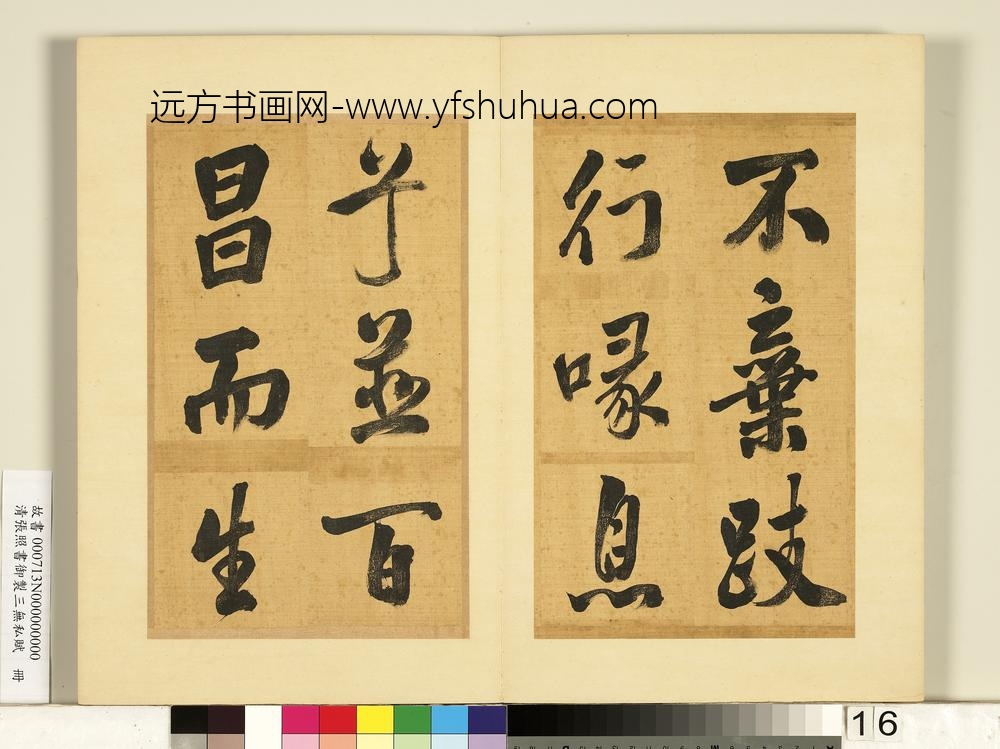 远方书画网-www.yfshuhua.com
不棄跂
行喙息
兮並百
昌而生
故書 000713N000000000
清張照書御製三無私賦 冊
16